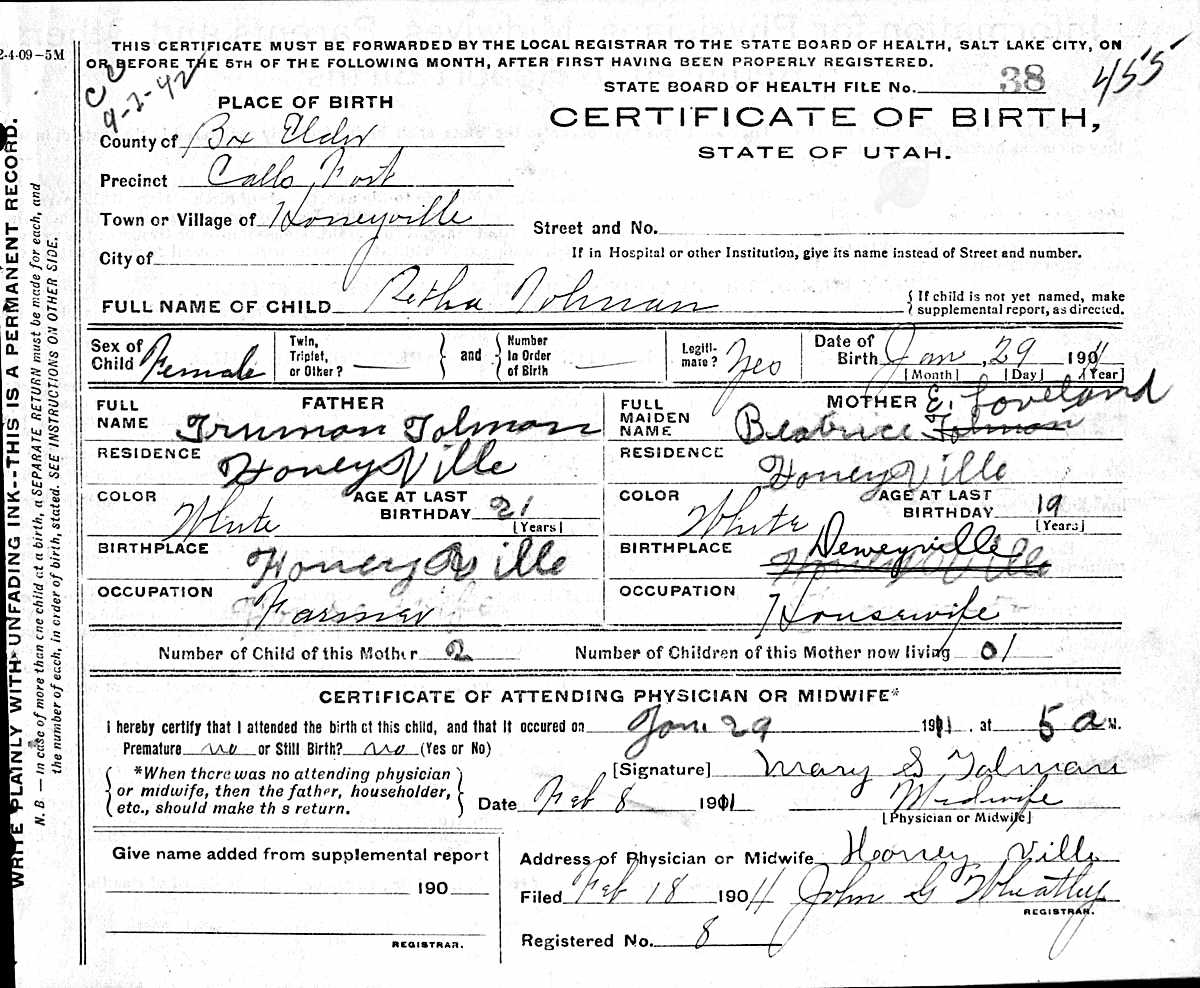 2-4-09-5M
THIS CERTIFICATE MUST BE FORWARDED BY THE LOCAL REGISTRAR TO THE STATE BOARD OF HEALTH, SALT LAKE CITY, ON
OR BEFORE THE 5TH OF THE FOLLOWING MONTH, AFTER FIRST HAVING BEEN PROPERLY REGISTERED.
CC
9-2-42
STATE BOARD OF HEALTH FILE No. 38 455
PLACE OF BIRTH
CERTIFICATE OF BIRTH,
STATE OF UTAH.
County of Bx Elder
Precinct Calls Fort
Town or Village of Honeyville
Street and No.
City of
If in Hospital or other Institution, give its name instead of Street and number.
FULL NAME OF CHILD Retha Tolman
{ If child is not yet named, make
supplemental report, as directed.
Sex of Child Female
Twin, Triplet, or Other? — } and { Number In Order of Birth —
Legiti-mate? Yes
Date of Birth Jan, 29 1911
[Month] [Day] [Year]
FATHER
FULL NAME Truman Tolman
MOTHER
FULL MAIDEN NAME Beatrice Tolman E. Loveland
RESIDENCE HoneyVille
RESIDENCE HoneyVille
COLOR White
AGE AT LAST BIRTHDAY 21
[Years]
COLOR White
AGE AT LAST BIRTHDAY 19
[Years]
BIRTHPLACE HoneyVille
BIRTHPLACE Deweyville HoneyVille
OCCUPATION Farmer
OCCUPATION Housewife
Number of Child of this Mother 2
Number of Children of this Mother now living 01
CERTIFICATE OF ATTENDING PHYSICIAN OR MIDWIFE*
I hereby certify that I attended the birth of this child, and that it occured on Jan. 29 1911, at 5 a M.
Premature no or Still Birth? no (Yes or No)
*When there was no attending physician
or midwife, then the father, householder,
etc., should make th s return.
[Signature] Mary S Tolman
Date Feb 8 1911
Midwife
[Physician or Midwife]
Give name added from supplemental report
190
REGISTRAR.
Address of Physician or Midwife Honey ville
Filed Feb 18 1911 John G Wheatley
REGISTRAR.
Registered No. 8
WRITE PLAINLY WITH UNFADING INK--THIS IS A PERMANENT RECORD.
N. B — In case of more than one child at birth, a SEPARATE RETURN must be made for each, and
the number of each, in order of birth, stated. SEE INSTRUCTIONS ON OTHER SIDE.